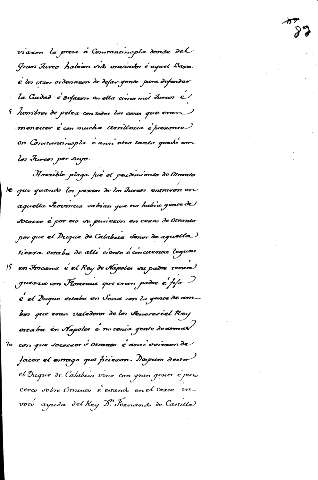 nº
89
viaron la presa á Constantinopla donde del
Gran Turco habian sido mandados é aquel Baxa
é los otros ordenaron de dejar gente para defender
la Ciudad é dejaron en ella cinco mil Turcos é
5 hombres de pelea con todas las cosas que eran
menester é con mucha artilleria é fueronse
en Constantinopla é ansi otra tanta quedó con
los Turcos por suya.
Horrible plaga fué el perdimiento de Otranto
10 que quando los perros de los Turcos entraron en
aquella Provincia sabian que no habia gente de
socorro é por eso se pusieron en cerco de Otranto
por que el Duque de Calabria Señor de aquella
tierra estaba de alli ciento é cincuenta leguas
15 en Toscana é el Rey de Napoles su padre tenia
guerra con Florencia que eran padre é fijo
é el Duque estaba en Sena con la gente de am-
bos que eran valedores de los Seneses é el Rey
estaba en Napoles é no tenia gente de armas
20 con que socorrer á Otranto é ansi ovieron de
facer el estrago que ficieron. Despues de esto
el Duque de Calabria vino con gran gente é puso
cerco sobre Otranto é estando en el cerco in-
vocó ayuda del Rey Dn. Fernando de Castilla